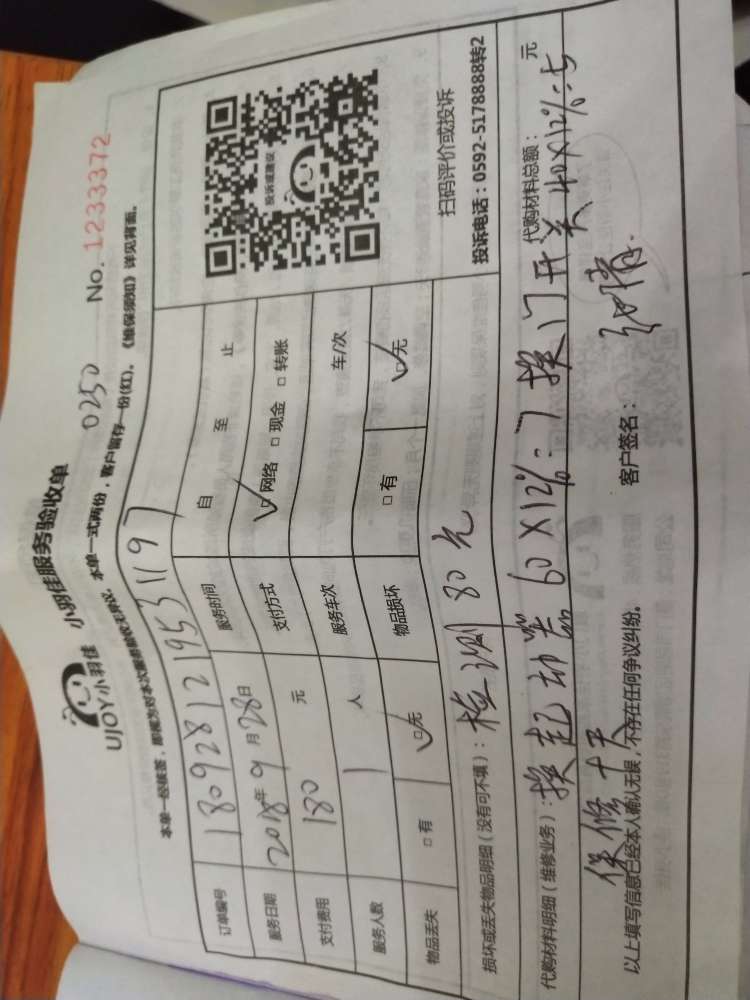 UJOY小羽佳 小羽佳服务验收单
0250 No. 1233372
本单一经核签，即视为对本次服务验收无异议，本单一式两份，客户留存一份(红)。《维保须知》详见背面。
订单编号 1809281219531197
服务日期 2018年9月28日 服务时间 自 至 止
支付费用 180 元 支付方式 ☑网络 □现金 □转账
服务人数 1 人 服务车次 车/次
物品丢失 □有 ☑无 物品损坏 □有 ☑无
投诉或建议
扫码评价或投诉
投诉电话：0592-5178888转2
损坏或丢失物品明细（没有可不填）：检测 80元
代购材料明细（维修业务）： 代购材料总额： 元
换起动器 60×12%=7 换门开关 40×12%=5
保修十天
以上填写信息已经本人确认无误，不存在任何争议纠纷。 客户签名：